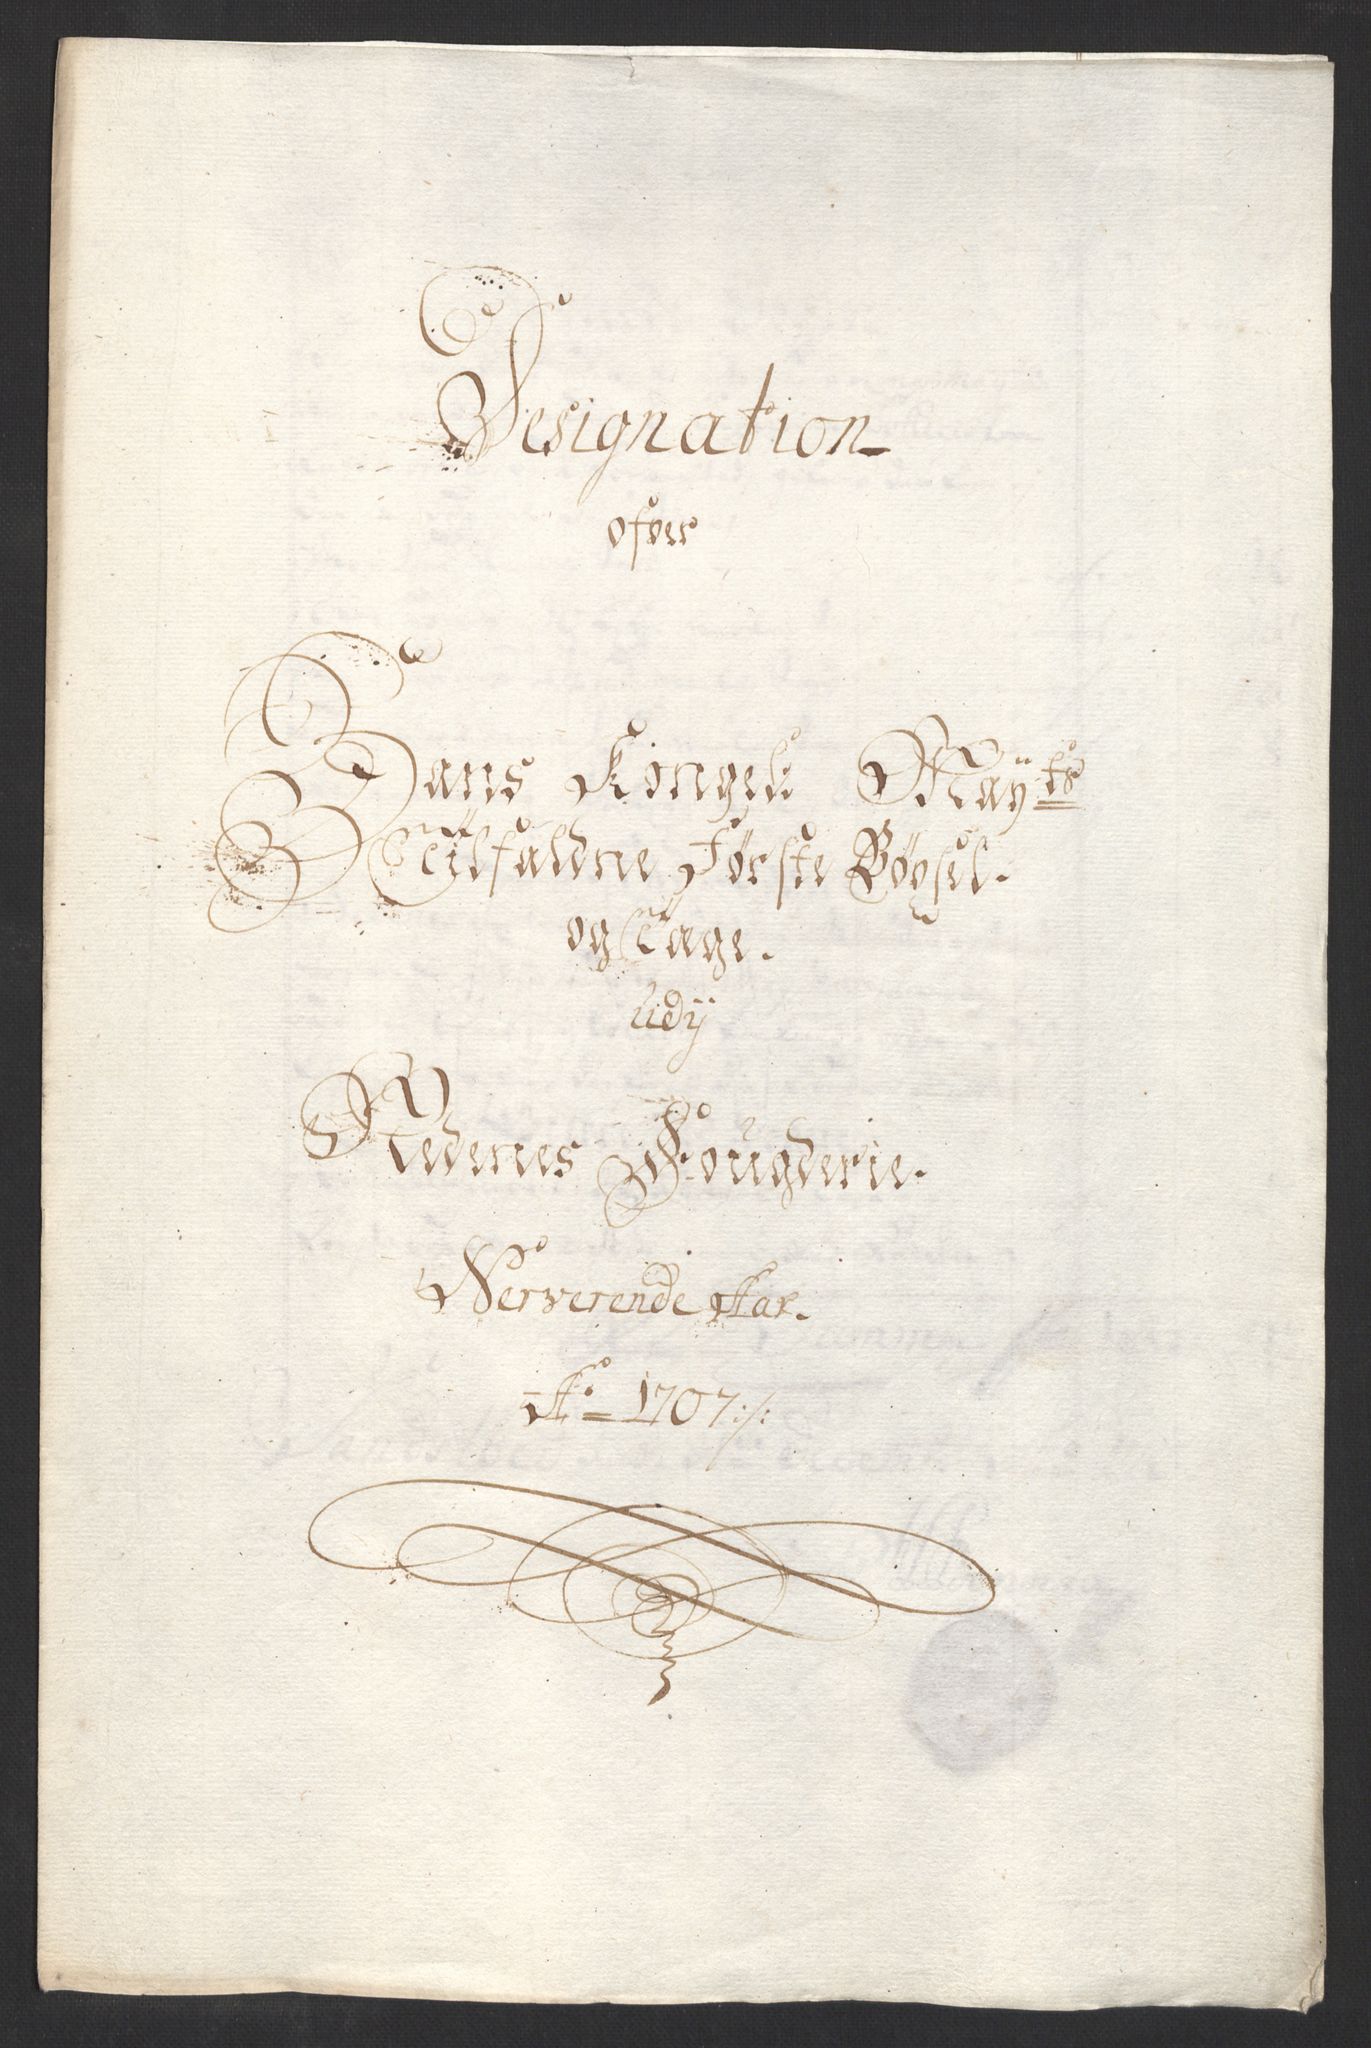 Designation
ofver
Hans Kongel: Maÿ:ts
Tilfaldne Første Böxsel.
og Tage.
udÿ
Nedenes Fougderie.
Nerverende Aar.
Ao 1707:/: